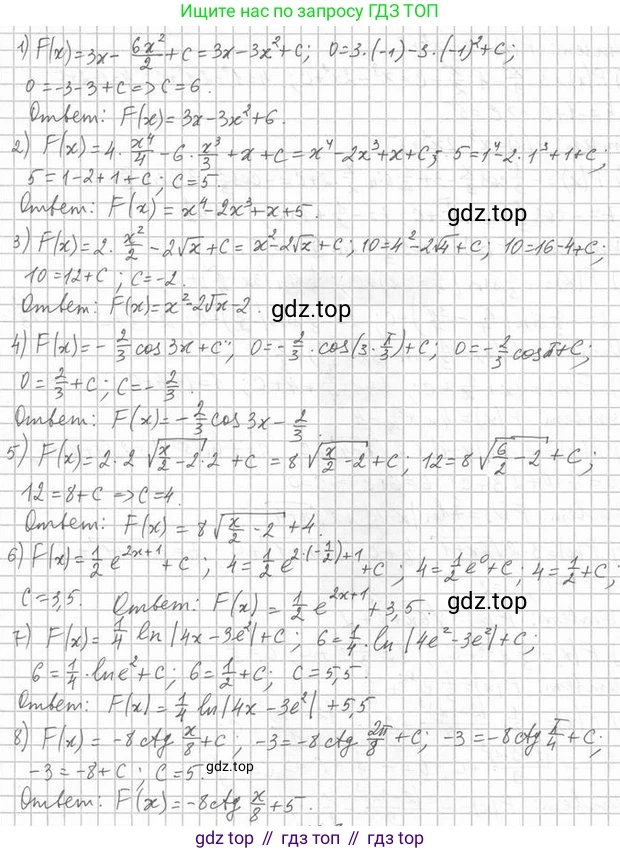 Ищите нас по запросу ГДЗ ТОП
1) F(x)=3x- 6x²/2 +C=3x-3x²+C; 0=3·(-1)-3·(-1)²+C;
0=-3-3+C=>C=6.
Ответ: F(x)=3x-3x²+6.
2) F(x)=4·x⁴/4-6·x³/3+x+C=x⁴-2x³+x+C; 5=1⁴-2·1³+1+C;
5=1-2+1+C; C=5.
Ответ: F(x)=x⁴-2x³+x+5.
gdz.top
3) F(x)=2·x²/2-2√x+C=x²-2√x+C; 10=4²-2√4+C; 10=16-4+C;
10=12+C; C=-2.
Ответ: F(x)=x²-2√x-2.
gdz.top
4) F(x)=-2/3 cos3x+C; 0=-2/3·cos(3·π/3)+C; 0=-2/3 cosπ+C;
0=2/3+C; C=-2/3.
Ответ: F(x)=-2/3 cos3x-2/3.
5) F(x)=2·2√(x/2-2)·2+C=8√(x/2-2)+C; 12=8√(6/2-2)+C;
12=8+C=>C=4.
Ответ: F(x)=8√(x/2-2)+4.
6) F(x)=1/2 e^(2x+1)+C; 4=1/2 e^(2·(-1/2)+1)+C; 4=1/2 e⁰+C; 4=1/2+C;
C=3,5. Ответ: F(x)=1/2 e^(2x+1)+3,5.
gdz.top
7) F(x)=1/4 ln|4x-3e²|+C; 6=1/4·ln|4e²-3e²|+C;
6=1/4·lne²+C; 6=1/2+C; C=5,5
Ответ: F(x)=1/4 ln|4x-3e²|+5,5
8) F(x)=-8ctg x/8+C; -3=-8ctg 2π/8+C; -3=-8ctg π/4+C;
-3=-8+C; C=5.
gdz.top
Ответ: F(x)=-8ctg x/8+5.
gdz.top // гдз.топ // гдз топ